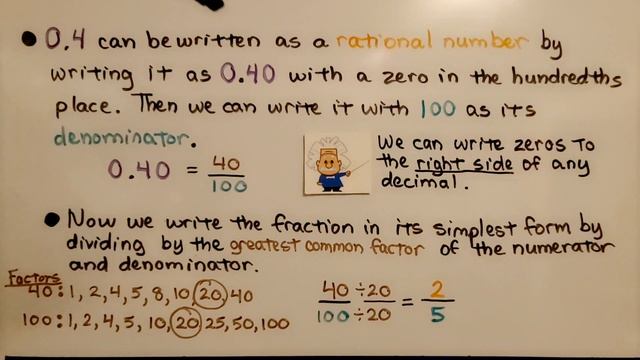 • 0.4 can be written as a rational number by
writing it as 0.40 with a zero in the hundredths
place. Then we can write it with 100 as its
denominator.
0.40 = 40/100
We can write zeros to
the right side of any
decimal.
• Now we write the fraction in its simplest form by
dividing by the greatest common factor of the numerator
and denominator.
Factors
40: 1, 2, 4, 5, 8, 10, 20, 40
100: 1, 2, 4, 5, 10, 20 25, 50, 100
40 ÷ 20 / 100 ÷ 20 = 2/5